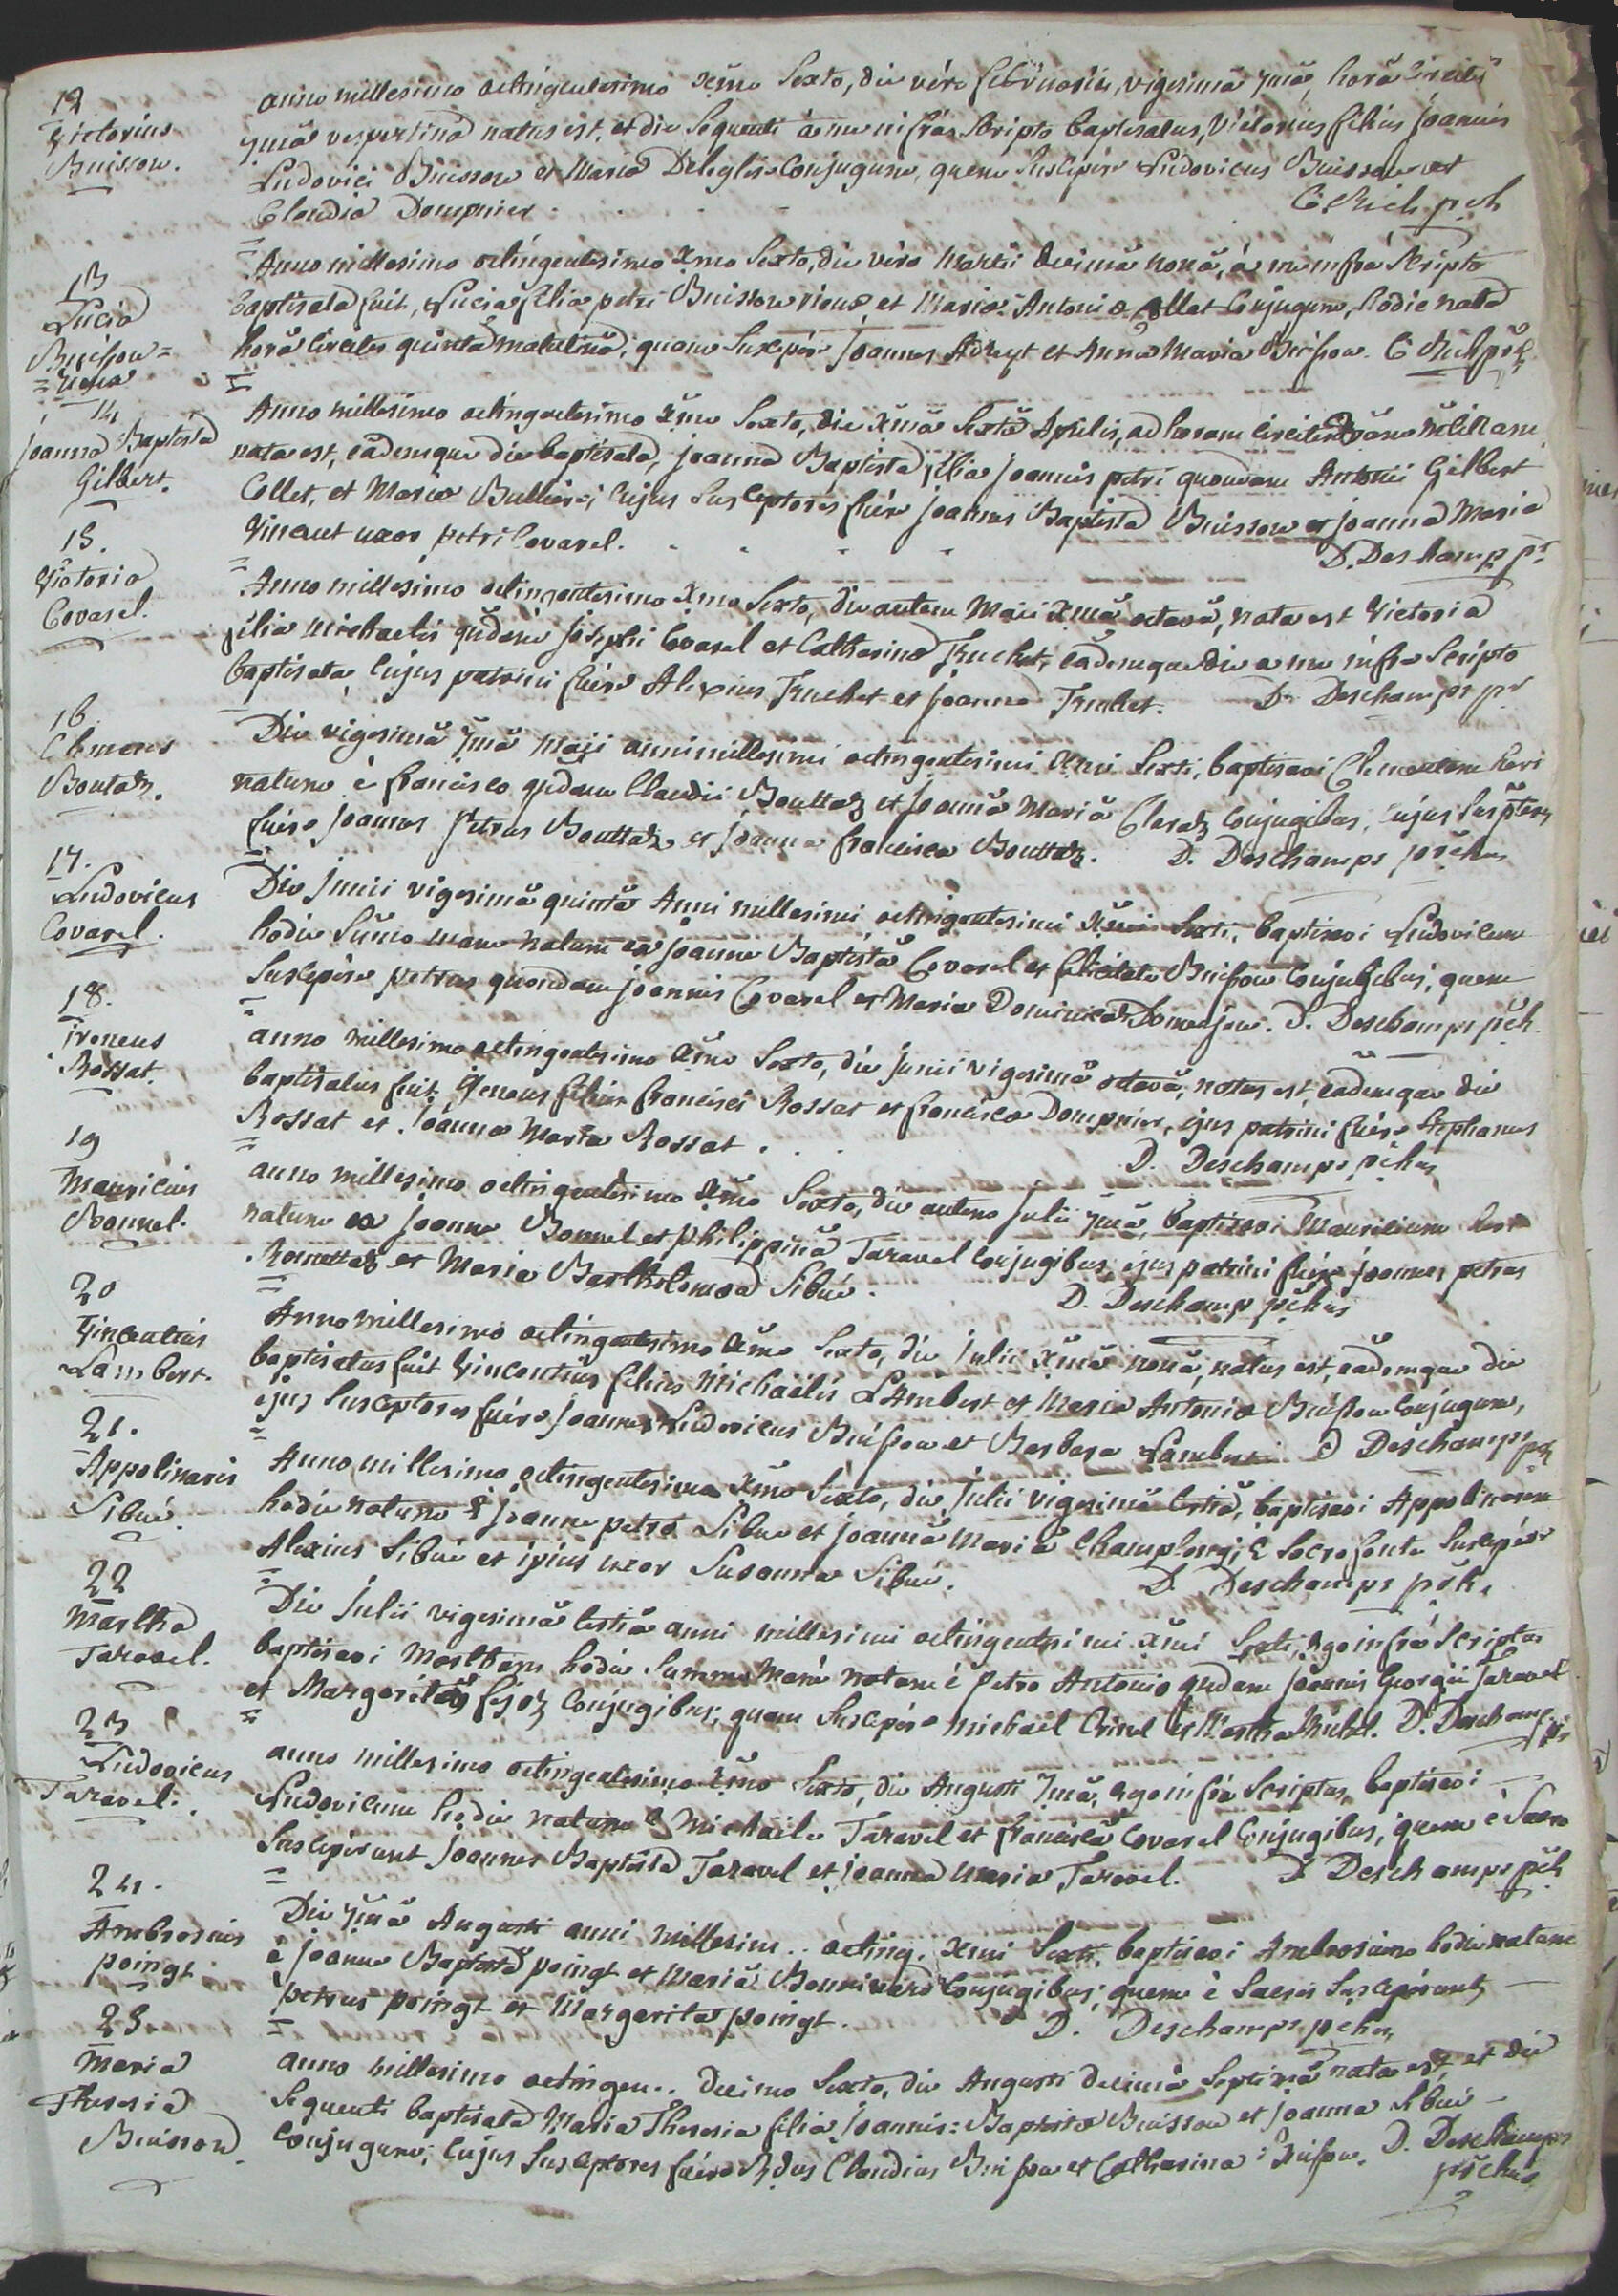 12
Victorius
Buisson.
anno millesimo octingentesimo Xmo Sexto, die vero februarii, vigesimâ 7mâ, horâ circiter
7mâ vespertinâ natus est, et die Sequenti à me infrà Scripto baptisatus, Victorius filius Joannis
Ludovici Buisson et Maria Deleglise Conjugum, quem Suscepêre Ludovicus Buisson et
Claudia Dompnier.
13
Lucia
Buisson=
Anno millesimo octingentesimo Xmo Sexto, die vero Martii decimâ nonâ, à me infrà Scripto
baptisata fuit, Lucia filia petri Buisson et Mariæ Antoniæ Collet Conjugum, hodie nata
horâ Circiter quintâ matutinâ; quam Suscepêre Joannes et Anna Maria Buisson.
14
Joanna Baptista
Gilbert.
Anno millesimo octingentesimo Xmo Sexto, die Xmâ Sextâ Aprilis, ad horam circiter
nata est, eâdemque die baptisata, Joanna Baptista filia Joannis petri quondam Antonii Gilbert
Collet, et Maria cujus Susceptores fuêre Joannes Baptista Buisson et Joanna Maria
Vincent uxor petri Covarel.
D. Deschamps pr
15.
Victoria
Covarel.
Anno millesimo octingentesimo Xmo Sexto, die autem Maii Xmâ octavâ, nata est Victoria
filia Michaelis qudam Josephi Covarel et Catharina Truchet, eâdemque die a me infra Scripto
baptisata, Cujus patrini fuêre Alexius Truchet et Joanna Truchet. D. Deschamps pr
16
Clemens
Bouttaz.
Die vigesimâ 7mâ Maji anni millesimi octingentesimi Xmi Sexti, baptisavi Clementem heri
natum è francisco qudam Claudii Bouttaz et Joannâ Mariâ Claraz Conjugibus, cujus
fuêre Joannes Petrus Bouttaz et Joanna francisca Bouttaz. D. Deschamps pchus
17.
Ludovicus
Covarel.
Die Junii vigesimâ quintâ Anni millesimi octingentesimi Xmi Sexti, baptisavi Ludovicum
hodie Summo mane natum ex Joanne Baptistâ Covarel et felicitate Buisson Conjugibus, quem
Suscepêre Petrus quondam Joannis Covarel et Maria Dominica D. Deschamps pch
18.
Ireneus
Rossat.
anno millesimo octingentesimo Xmo Sexto, die Junii vigesimâ octavâ, natus est, eâdemque die
baptisatus fuit Ireneus filius francisci Rossat et francisca Dompnier, ejus patrini fuêre Stephanus
Rossat et Joanna Maria Rossat.
D. Deschamps pchus
19
Mauricius
Bonnel.
anno millesimo octingentesimo Xmo Sexto, die autem Julii 7mâ, baptisavi Mauricium heri
natum ex Joanne Bonnel et Philippinâ Taravel Conjugibus, ejus patrini fuêre Joannes petrus
et Maria Bartholomea Sibué.
D. Deschamps pchus
20
Vincentius
Lambert.
Anno millesimo octingentesimo Xmo Sexto, die Julii Xmâ nonâ, natus est, eâdemque die
baptisatus fuit Vincentius filius Michaëlis Lambert et Maria Antonia Buisson Conjugum,
ejus Susceptores fuêre Joannes Ludovicus Buisson et Barbara Lambert. D Deschamps pch
21.
Appolinaris
Sibué.
Anno millesimo octingentesimo Xmo Sexto, die Julii vigesimâ tertiâ, baptisavi Appolinarem
hodie natum è Joanne petro Sibué et Joannâ Mariâ Champlong; è Sacro fonte Suscepêre
Alexius Sibué et ipsius uxor Susanna Sibué.
D. Deschamps pch.
22
Martha
Taravel.
Die Julii vigesimâ tertiâ anni millesimi octingentesimi Xmi Sexti, ego infrà Scriptus
baptisavi Martham hodie Summo Mane natam è Petro Antonio qudam Joannis Georgii Taravel
et Margaritâ Conjugibus; quam Suscepêre Michael et D. Deschamps pr
23
Ludovicus
Taravel.
anno millesimo octingentesimo Xmo Sexto, die Augusti 7mâ, ego infrà Scriptus, baptisavi
Ludovicum hodie natum è Michaële Taravel et franciscâ Covarel Conjugibus; quem è Sacro
Susceperunt Joannes Baptista Taravel et Joanna Maria Taravel. D Deschamps pch
24.
Ambrosius
poingt
Die 7mâ Augusti anni millesim.. octing. Xmi Sexti, baptisavi Ambrosium hodie natum
è Joanne Baptistâ poingt et Mariâ Conjugibus; quem è Sacris Susceperunt
petrus poingt et Margarita poingt.
D. Deschamps pchus
25
Maria
Theresia
Buisson
anno millesimo octingen.. decimo Sexto, die Augusti decimâ Septimâ nata est, et die
Sequenti baptisata Maria Theresia filia Joannis=Baptista Buisson et Joanna Sibué
Conjugum; Cujus Susceptores fuêre Rdus Claudius Buisson et Catharina Buisson. D. Deschamps
pchus